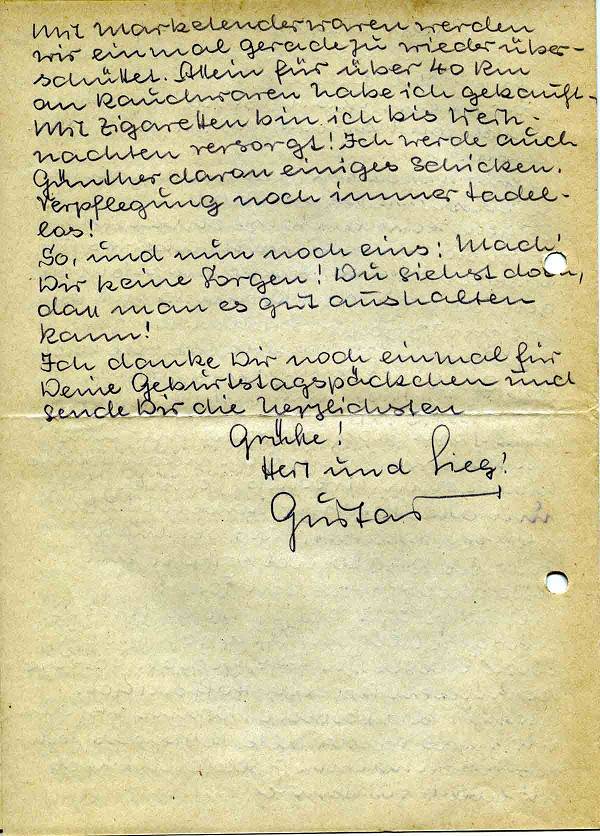 Mit Marketenderwaren werden
wir einmal geradezu wieder über-
schüttet. Allein für über 40 RM
an Rauchwaren habe ich gekauft.
Mit Zigaretten bin ich bis Weih-
nachten versorgt! Ich werde auch
Günther davon einiges schicken.
Verpflegung noch immer tadel-
los!
So, und nun noch eins: Mach'
Dir keine Sorgen! Du siehst doch,
daß man es gut aushalten
kann!
Ich danke Dir noch einmal für
Deine Geburtstagspäckchen und
sende Dir die herzlichsten
Grüße!
Heil und Sieg!
Gustav